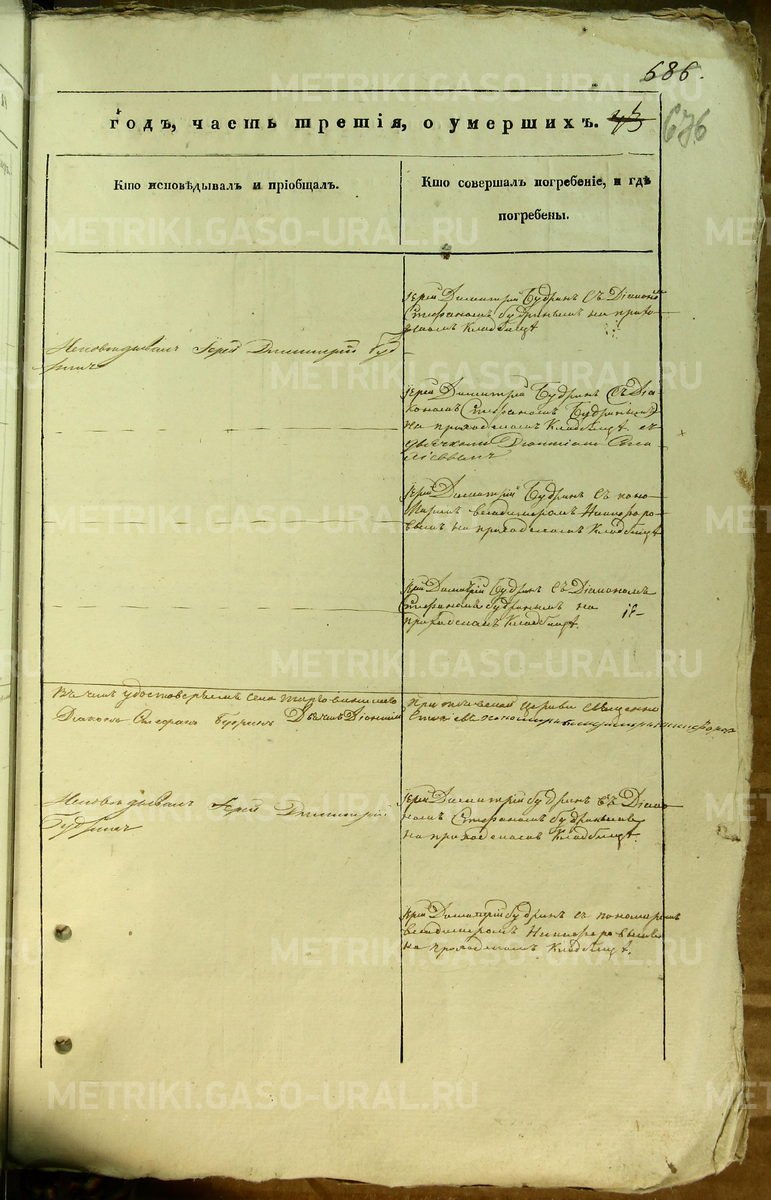 686.
годъ, часть третія, о умершихъ. 43
676
Кто исповѣдывалъ и пріобщалъ.
Кто совершалъ погребеніе, и гдѣ
погребены.
Іерей Димитрій Будринъ съ Діакономъ
Стефаномъ Будринымъ на прихо-
дскомъ Кладбищѣ
Исповѣдывалъ Іерей Димитрій Буд
ринъ
Іерей Димитрій Будринъ съ Діа-
кономъ Стефаномъ Будринымъ
на приходскомъ Кладбищѣ съ
дьячкомъ
Іерей Димитрій Будринъ съ поно-
маремъ Никифоро-
вымъ на приходскомъ Кладбищѣ
Іерей Димитрій Будринъ съ Діакономъ
Стефаномъ Будринымъ на
приходскомъ Кладбищѣ.
Въ чемъ удостовѣряемъ села
Діаконъ Стефанъ Будринъ
При церкви священно
Исповѣдывалъ Іерей Димитрій
Будринъ
Іерей Димитрій Будринъ съ Діако-
номъ Стефаномъ Будринымъ
на приходскомъ Кладбищѣ.
Іерей Димитрій Будринъ съ пономаремъ
Никифоровымъ
на приходскомъ Кладбищѣ.
METRIKI.GASO-URAL.RU